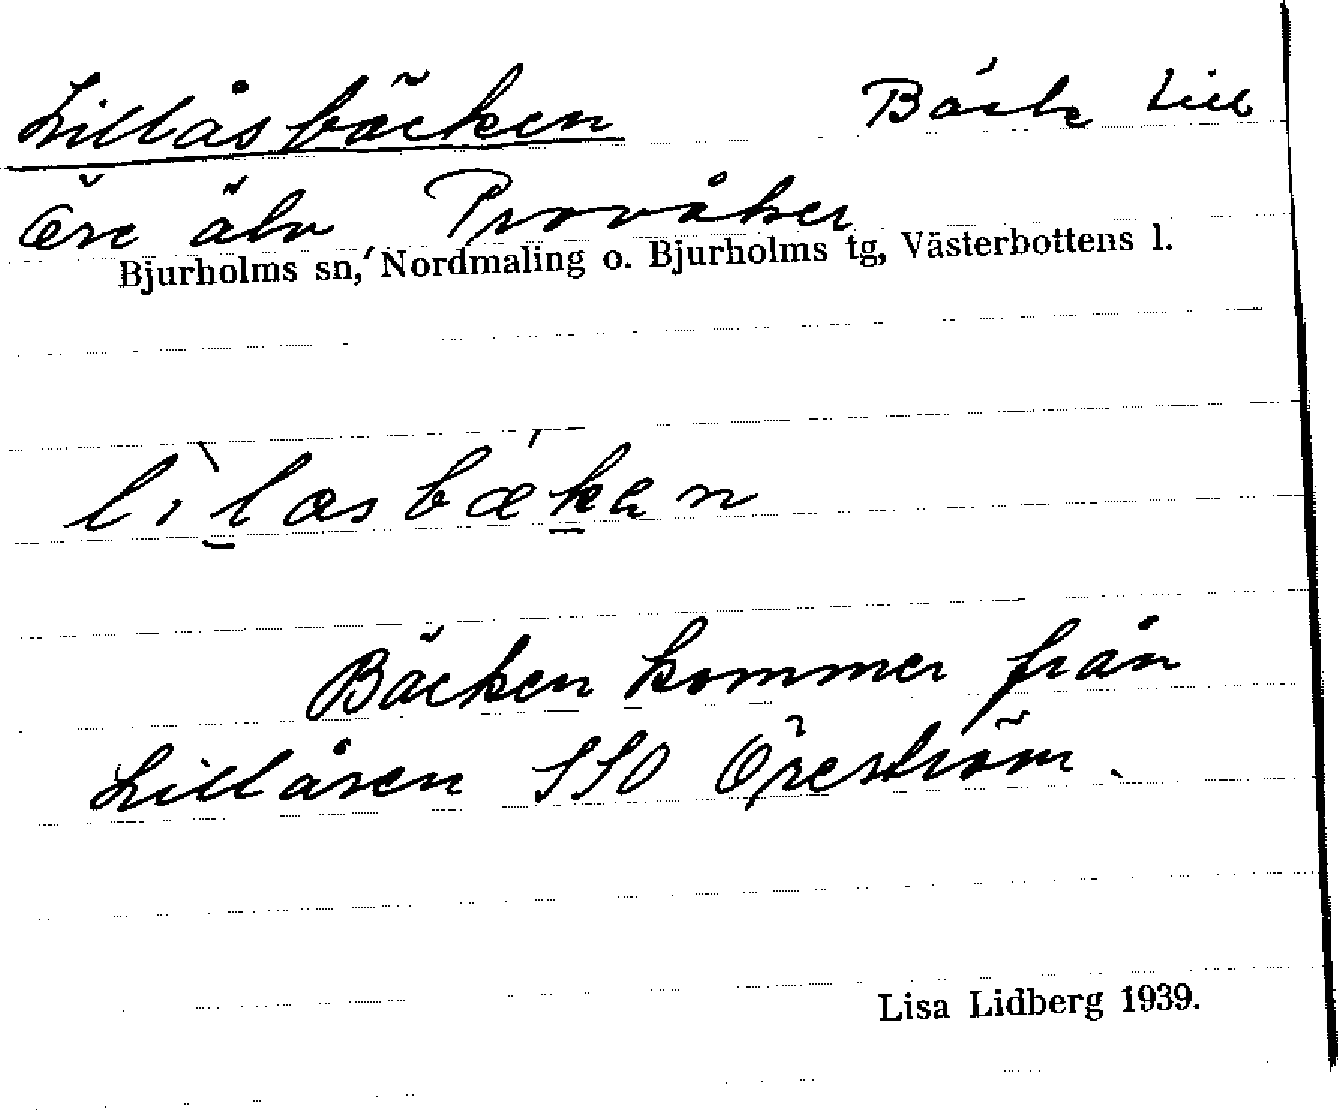 Lillåsbäcken Bäck till
Öre älv Provåker
Bjurholms sn, Nordmaling o. Bjurholms tg, Västerbottens l.
lìlasbǽkan
Bäcken kommer från
Lillåsen SSO Öreström.
Lisa Lidberg 1939.